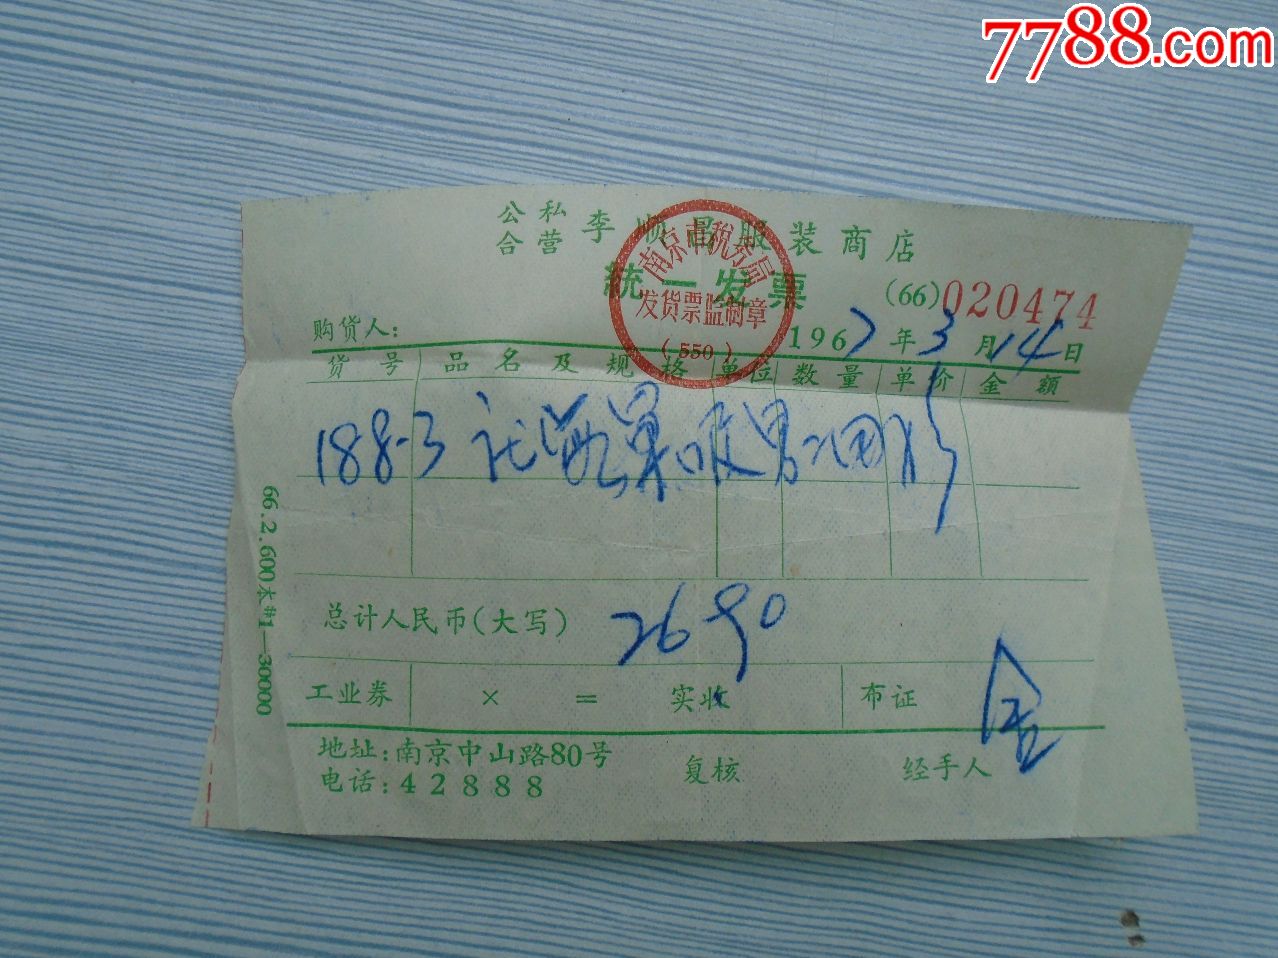 7788.com
公私合营 李顺昌服装商店
统一发票
(66)020474
南京市税务局
发货票监制章
(550)
购货人:
1967年3月14日
货号 品名及规格 单位 数量 单价 金额
188-3
总计人民币(大写) 26 90
工业券 × = 实收 布证
地址:南京中山路80号
电话:42888
复核
经手人
66.2.600本#1—30000